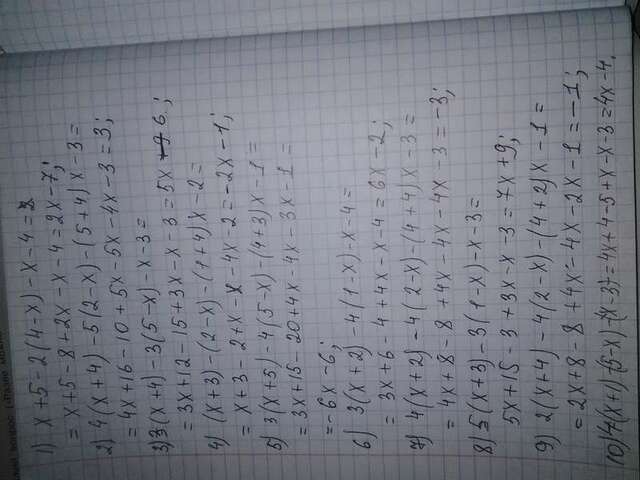 1) x+5-2(4-x)-x-4=
=x+5-8+2x-x-4=2x-7;
2) 4(x+4)-5(2-x)-(5+4)x-3=
=4x+16-10+5x-5x-4x-3=3;
3) 3(x+4)-3(5-x)-x-3=
=3x+12-15+3x-x-3=5x-6;
4) (x+3)-(2-x)-(1+4)x-2=
=x+3-2+x-x-4x-2=-2x-1;
5) 3(x+5)-4(5-x)-(4+3)x-1=
=3x+15-20+4x-4x-3x-1=
=-6x-6;
6) 3(x+2)-4(1-x)-x-4=
=3x+6-4+4x-x-4=6x-2;
7) 4(x+2)-4(2-x)-(4+4)x-3=
=4x+8-8+4x-4x-4x-3=-3;
8) 5(x+3)-3(1-x)-x-3=
5x+15-3+3x-x-3=7x+9;
9) 2(x+4)-4(2-x)-(4+2)x-1=
=2x+8-8+4x-4x-2x-1=-1;
10) 4(x+1)-(5-x)-x-3=4x+4-5+x-x-3=4x-4.